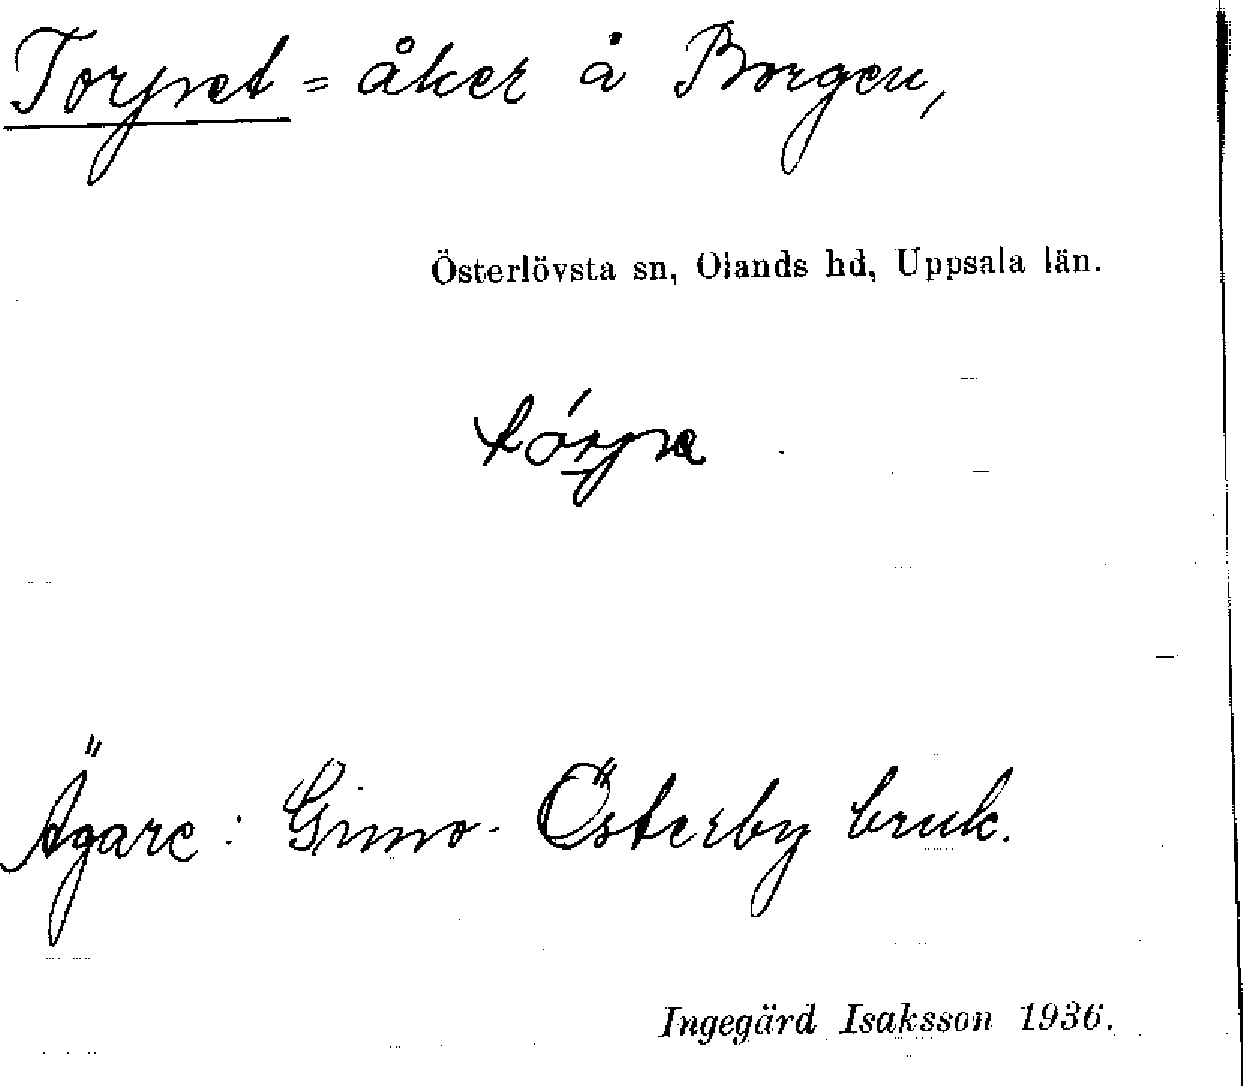 Torpet = åker å Borgen,
Österlövsta sn, Olands hd, Uppsala län.
tórpa
Ägare: Gimo-Österby bruk.
Ingegärd Isaksson 1936.